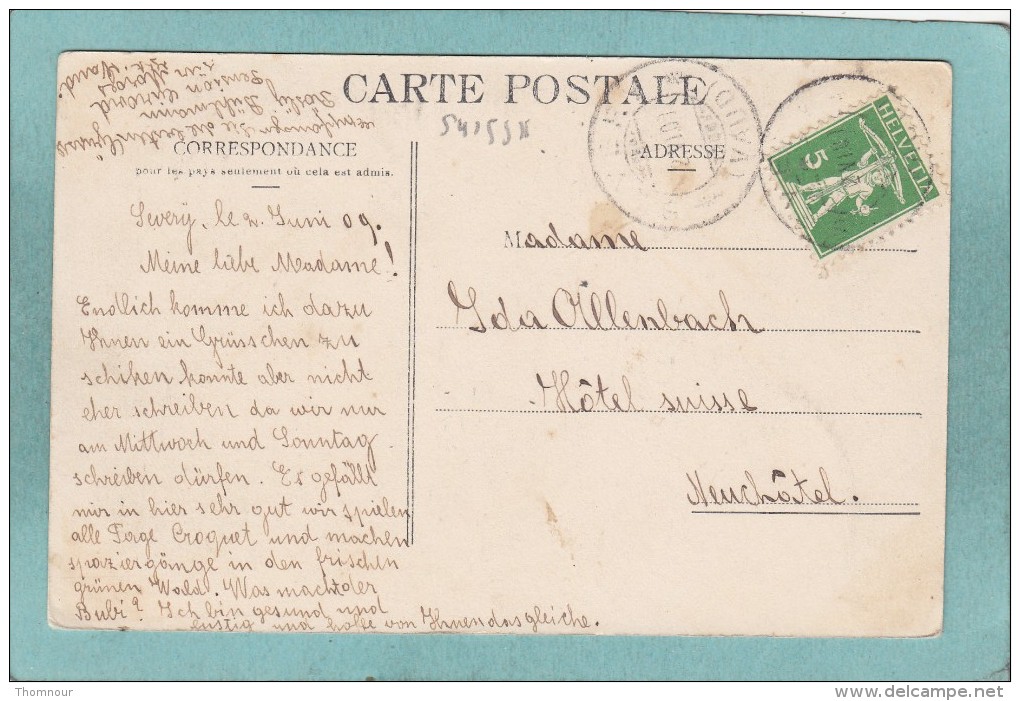 CARTE POSTALE
CORRESPONDANCE
pour les pays seulement où cela est admis.
ADRESSE
HELVETIA
5
Severÿ, le 2. Juni 09.
Meine liebe Madame!
Endlich komme ich dazu
Ihnen ein Grüsschen zu
schiken konnte aber nicht
eher schreiben da wir nur
am Mittwoch und Sonntag
schreiben dürfen. Es gefällt
mir in hier sehr gut wir spielen
alle Tage Croquet und machen
spaziergänge in den frischen
grünen Wald. Was macht der
Bubi? Ich bin gesund und
lustig und hoffe von Ihnen das gleiche.
Pension Girard
Madame
Ida Allenbach
Hôtel suisse
Neuchâtel.
Thomnour
www.delcampe.net